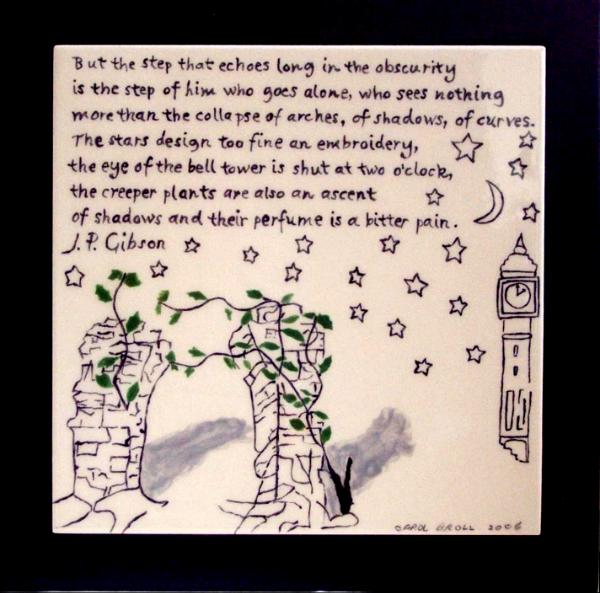 But the step that echoes long in the obscurity
is the step of him who goes alone, who sees nothing
more than the collapse of arches, of shadows, of curves.
The stars design too fine an embroidery,
the eye of the bell tower is shut at two o'clock,
the creeper plants are also an ascent
of shadows and their perfume is a bitter pain.
J. P. Gibson
CAROL GROLL 2006